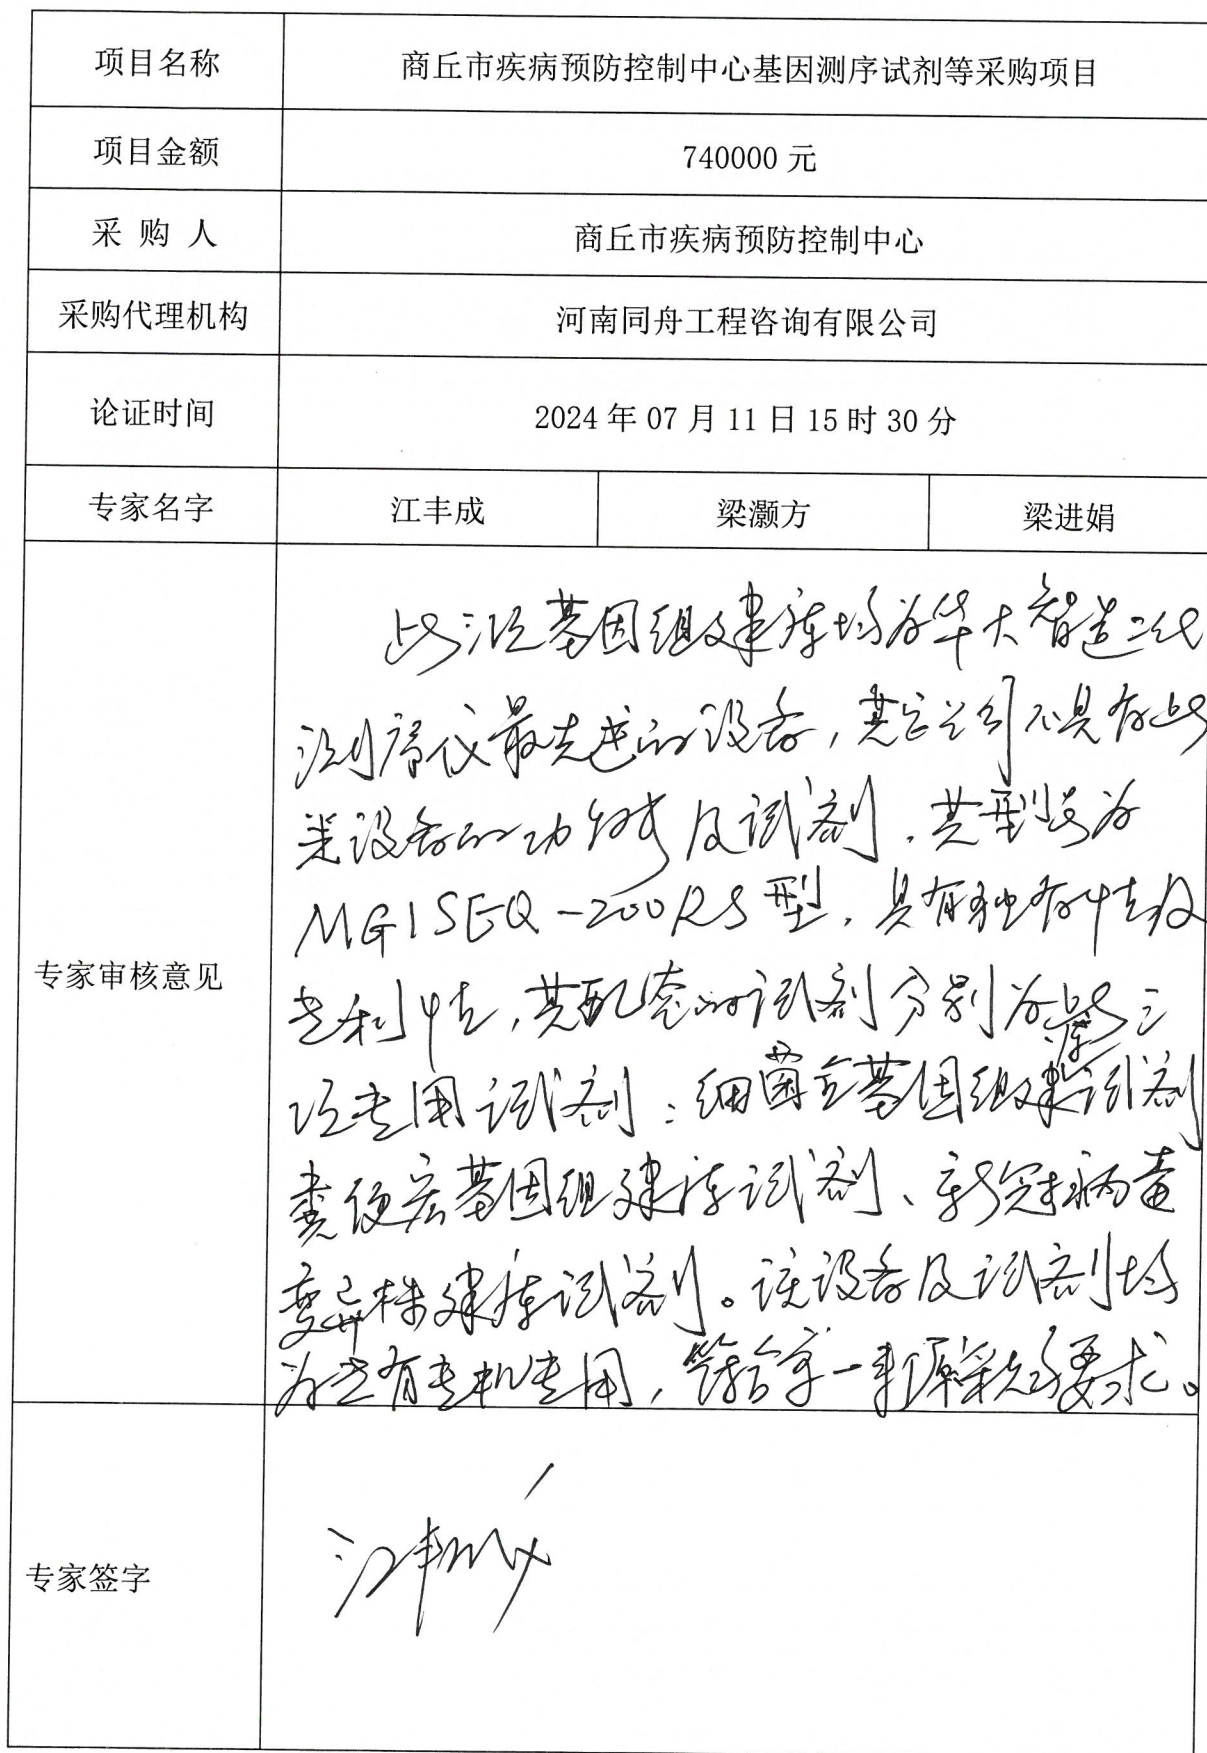 项目名称 商丘市疾病预防控制中心基因测序试剂等采购项目
项目金额 740000 元
采 购 人 商丘市疾病预防控制中心
采购代理机构 河南同舟工程咨询有限公司
论证时间 2024 年 07 月 11 日 15 时 30 分
专家名字 江丰成 梁灏方 梁进娟
专家审核意见
此三项基因组建库均为华大智造二代
测序仪最先进的设备，其它公司不具有此
类设备的功能及试剂，其型号为
MGISEQ-200RS型，具有独有性及
专利性，其配套的试剂分别为此三
项专用试剂：细菌全基因组建库试剂
粪便宏基因组建库试剂、新冠病毒
变异株建库试剂。该设备及试剂均
为专有专机专用，符合单一来源采购要求。
专家签字 江丰成